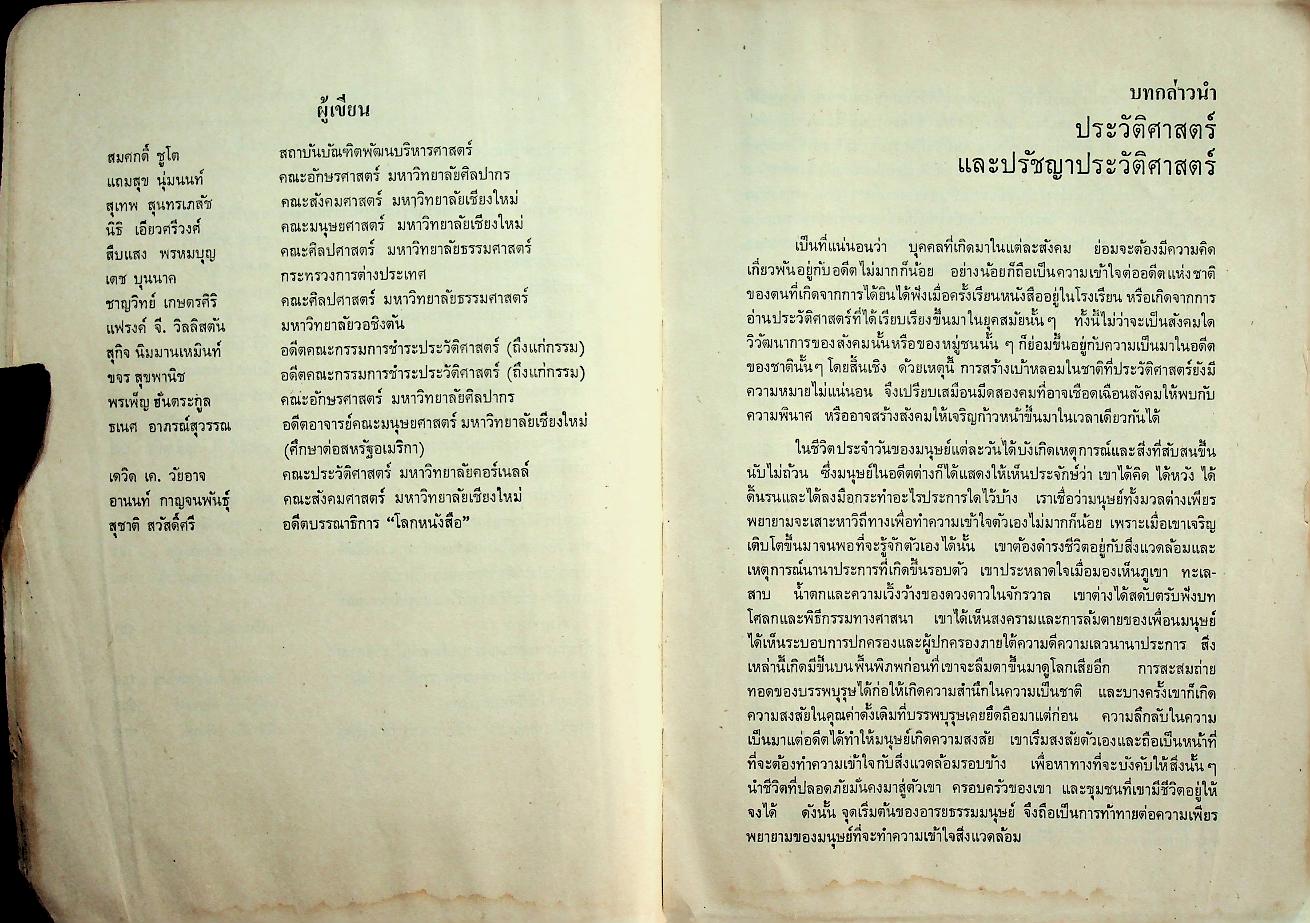 ผู้เขียน
สมศักดิ์ ชูโต สถาบันบัณฑิตพัฒนบริหารศาสตร์
แถมสุข นุ่มนนท์ คณะอักษรศาสตร์ มหาวิทยาลัยศิลปากร
สุเทพ สุนทรเภสัช คณะสังคมศาสตร์ มหาวิทยาลัยเชียงใหม่
นิธิ เอียวศรีวงศ์ คณะมนุษยศาสตร์ มหาวิทยาลัยเชียงใหม่
สืบแสง พรหมบุญ คณะศิลปศาสตร์ มหาวิทยาลัยธรรมศาสตร์
เตช บุนนาค กระทรวงการต่างประเทศ
ชาญวิทย์ เกษตรศิริ คณะศิลปศาสตร์ มหาวิทยาลัยธรรมศาสตร์
แฟรงค์ จี. วิลลิสตัน มหาวิทยาลัยวอชิงตัน
สุกิจ นิมมานเหมินท์ อดีตคณะกรรมการชำระประวัติศาสตร์ (ถึงแก่กรรม)
ขจร สุขพานิช อดีตคณะกรรมการชำระประวัติศาสตร์ (ถึงแก่กรรม)
พรเพ็ญ ฮั่นตระกูล คณะอักษรศาสตร์ มหาวิทยาลัยศิลปากร
ธเนศ อาภรณ์สุวรรณ อดีตอาจารย์คณะมนุษยศาสตร์ มหาวิทยาลัยเชียงใหม่
(ศึกษาต่อสหรัฐอเมริกา)
เดวิด เค. วัยอาจ คณะประวัติศาสตร์ มหาวิทยาลัยคอร์เนลล์
อานนท์ กาญจนพันธุ์ คณะสังคมศาสตร์ มหาวิทยาลัยเชียงใหม่
สุชาติ สวัสดิ์ศรี อดีตบรรณาธิการ “โลกหนังสือ”
บทกล่าวนำ
ประวัติศาสตร์
และปรัชญาประวัติศาสตร์
เป็นที่แน่นอนว่า บุคคลที่เกิดมาในแต่ละสังคม ย่อมจะต้องมีความคิด
เกี่ยวพันอยู่กับอดีตไม่มากก็น้อย อย่างน้อยก็ถือเป็นความเข้าใจต่ออดีตแห่งชาติ
ของตนที่เกิดจากการได้ยินได้ฟังเมื่อครั้งเรียนหนังสืออยู่ในโรงเรียน หรือเกิดจากการ
อ่านประวัติศาสตร์ที่ได้เรียบเรียงขึ้นมาในยุคสมัยนั้น ๆ ทั้งนี้ไม่ว่าจะเป็นสังคมใด
วิวัฒนาการของสังคมนั้นหรือของหมู่ชนนั้น ๆ ก็ย่อมขึ้นอยู่กับความเป็นมาในอดีต
ของชาตินั้นๆ โดยสิ้นเชิง ด้วยเหตุนี้ การสร้างเบ้าหลอมในชาติที่ประวัติศาสตร์ยังมี
ความหมายไม่แน่นอน จึงเปรียบเสมือนมีดสองคมที่อาจเชือดเฉือนสังคมให้พบกับ
ความพินาศ หรืออาจสร้างสังคมให้เจริญก้าวหน้าขึ้นมาในเวลาเดียวกันได้
ในชีวิตประจำวันของมนุษย์แต่ละวันได้บังเกิดเหตุการณ์และสิ่งที่สับสนขึ้น
นับไม่ถ้วน ซึ่งมนุษย์ในอดีตต่างก็ได้แสดงให้เห็นประจักษ์ว่า เขาได้คิด ได้หวัง ได้
ดิ้นรนและได้ลงมือกระทำอะไรประการใดไว้บ้าง เราเชื่อว่ามนุษย์ทั้งมวลต่างเพียร
พยายามจะเสาะหาวิถีทางเพื่อทำความเข้าใจตัวเองไม่มากก็น้อย เพราะเมื่อเขาเจริญ
เติบโตขึ้นมาจนพอที่จะรู้จักตัวเองได้นั้น เขาต้องดำรงชีวิตอยู่กับสิ่งแวดล้อมและ
เหตุการณ์นานาประการที่เกิดขึ้นรอบตัว เขาประหลาดใจเมื่อมองเห็นภูเขา ทะเล-
สาบ น้ำตกและความเวิ้งว้างของดวงดาวในจักรวาล เขาต่างได้สดับตรับฟังบท
โศลกและพิธีกรรมทางศาสนา เขาได้เห็นสงครามและการล้มตายของเพื่อนมนุษย์
ได้เห็นระบอบการปกครองและผู้ปกครองภายใต้ความดีความเลวนานาประการ สิ่ง
เหล่านี้เกิดมีขึ้นบนพื้นพิภพก่อนที่เขาจะลืมตาขึ้นมาดูโลกเสียอีก การสะสมถ่าย
ทอดของบรรพบุรุษได้ก่อให้เกิดความสำนึกในความเป็นชาติ และบางครั้งเขาก็เกิด
ความสงสัยในคุณค่าดั้งเดิมที่บรรพบุรุษเคยยึดถือมาแต่ก่อน ความลึกลับในความ
เป็นมาแต่อดีตได้ทำให้มนุษย์เกิดความสงสัย เขาเริ่มสงสัยตัวเองและถือเป็นหน้าที่
ที่จะต้องทำความเข้าใจกับสิ่งแวดล้อมรอบข้าง เพื่อหาทางที่จะบังคับให้สิ่งนั้น ๆ
นำชีวิตที่ปลอดภัยมั่นคงมาสู่ตัวเขา ครอบครัวของเขา และชุมชนที่เขามีชีวิตอยู่ให้
จงได้ ดังนั้น จุดเริ่มต้นของอารยธรรมมนุษย์ จึงถือเป็นการท้าทายต่อความเพียร
พยายามของมนุษย์ที่จะทำความเข้าใจสิ่งแวดล้อม